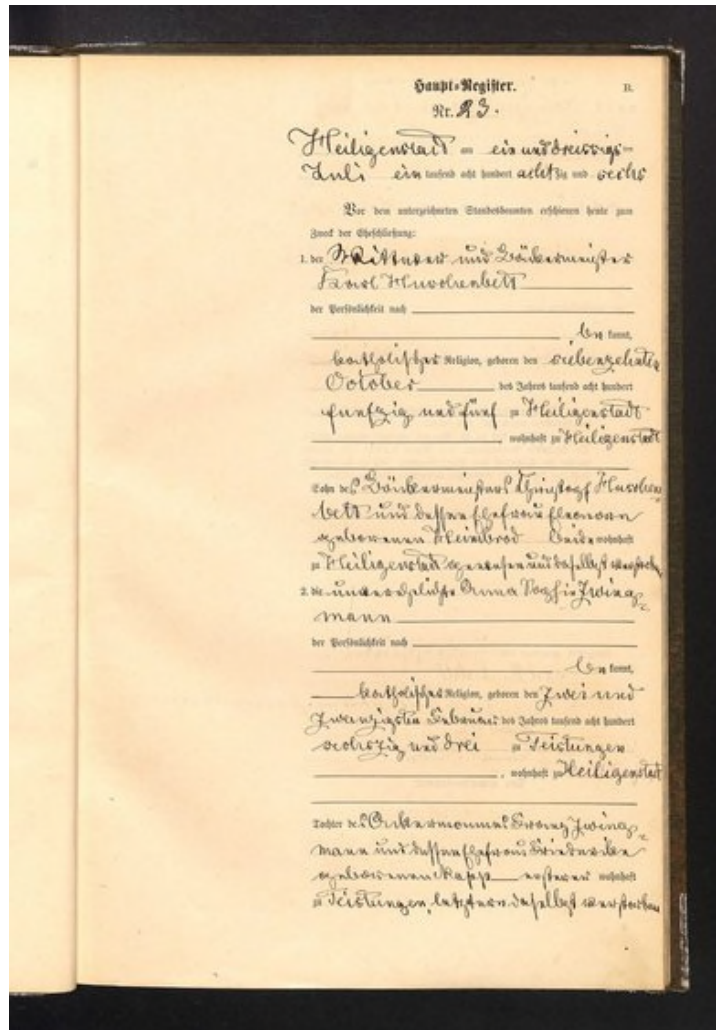 Haupt-Register.
B.
Nr. 23.
Heiligenstadt am ein und dreissigs-
Juli ein tausend acht hundert achtzig und sechs
Vor dem unterzeichneten Standesbeamten erschienen heute zum
Zweck der Eheschließung:
1. der Wittwer und Bäckermeister
Karl Huschenbett
der Persönlichkeit nach
be kannt,
katholischer Religion, geboren den siebenzehnten
October des Jahres tausend acht hundert
funfzig und fünf zu Heiligenstadt
, wohnhaft zu Heiligenstadt
Sohn des Bäckermeisters Christoph Huschen
bett und dessen Ehefrau Eleonora
geborenen Heimbrod beide wohnhaft
zu Heiligenstadt gewesen und daselbst verstorben
2. die unverehelichte Anna Sophie Zwing-
mann
der Persönlichkeit nach
be kannt,
katholischer Religion, geboren den zwei und
zwanzigsten Februar des Jahres tausend acht hundert
sechszig und drei zu Teistungen
, wohnhaft zu Heiligenstadt
Tochter des Ackermannes Franz Zwing-
mann und dessen Ehefrau Friederike
geborenen Kapp ersterer wohnhaft
zu Teistungen, letztere daselbst verstorben